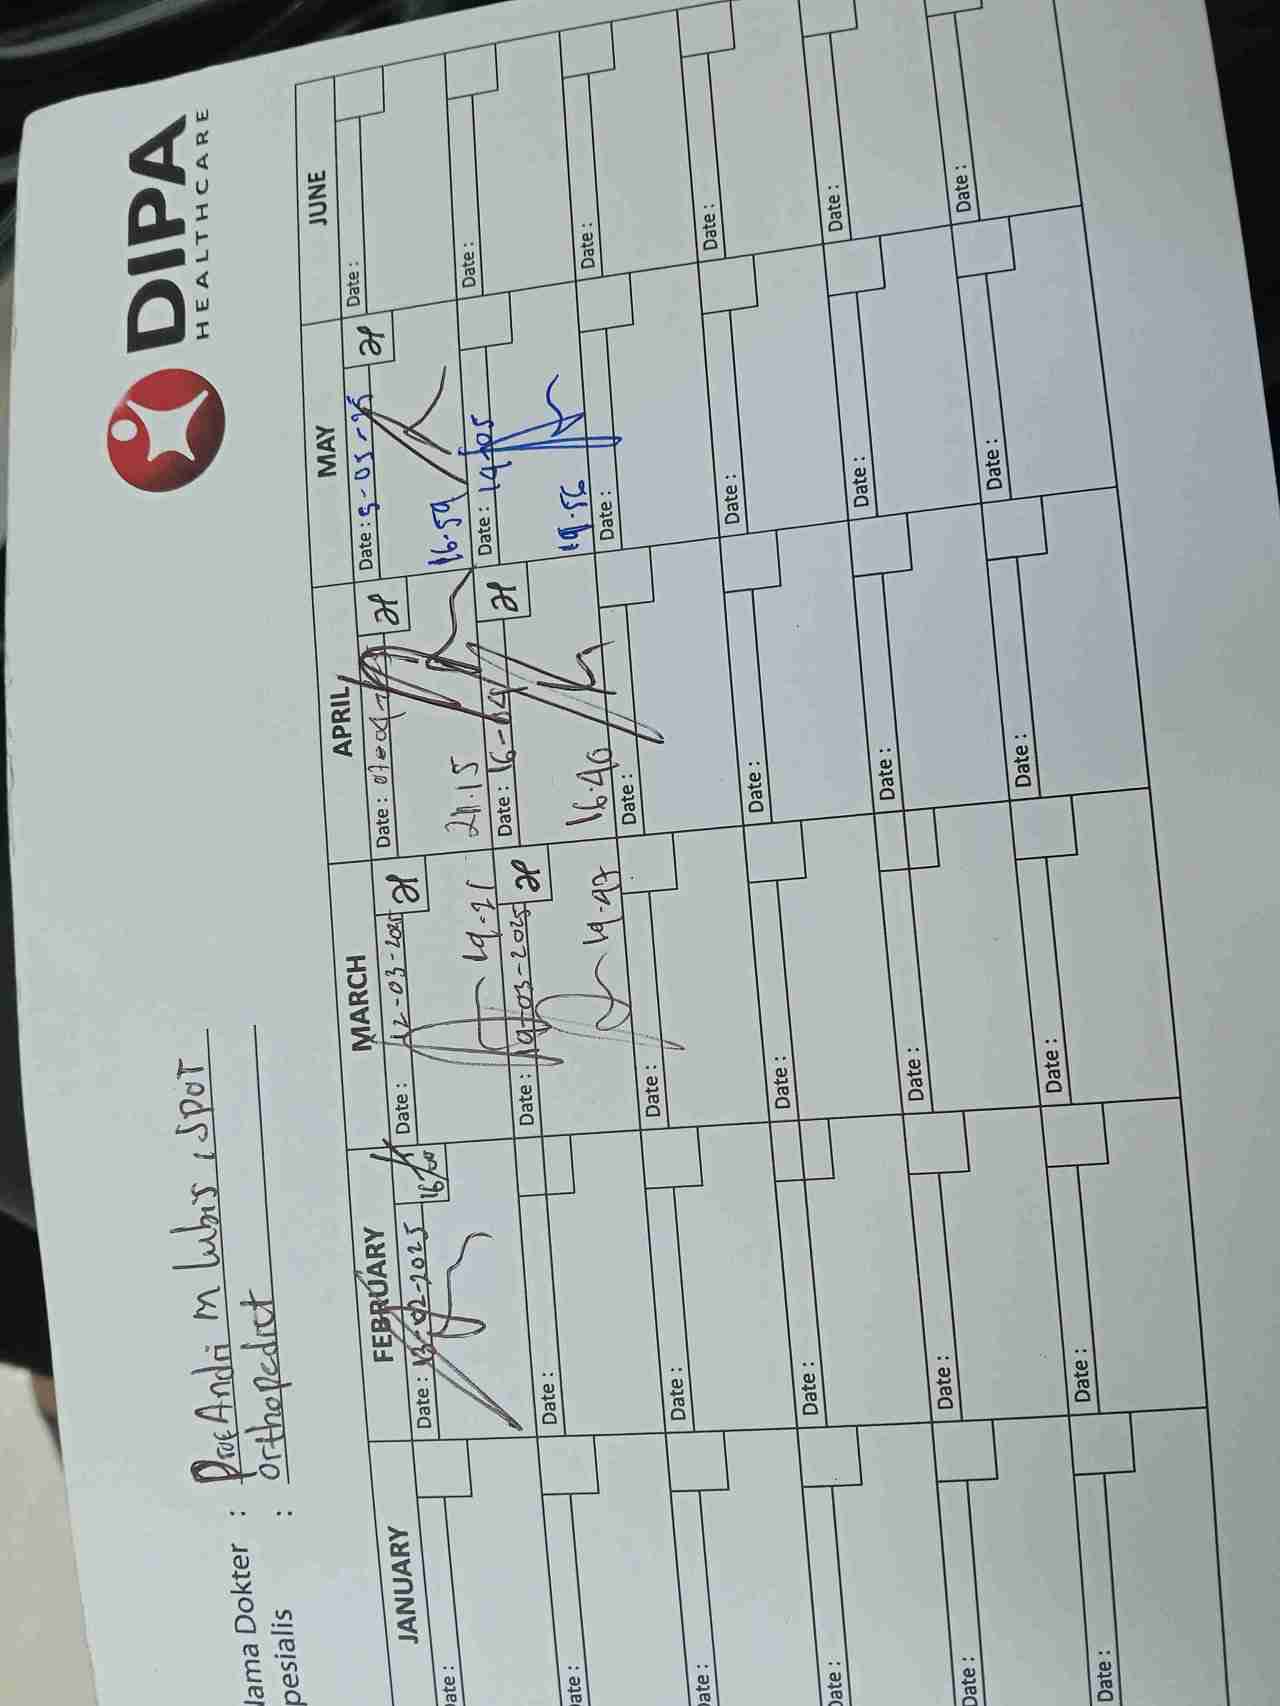 DIPA
HEALTHCARE
Nama Dokter : Prof Andri M Lubis, SPOT
Spesialis : Orthopedict
JANUARY FEBRUARY MARCH APRIL MAY JUNE
Date : Date : 13-02-2025 16/00 Date : 12-03-2025 Date : Date : 5-05-25 Date :
19-21 21.15 16.59
Date : Date : Date : 19-03-2025 Date : 16-04 Date : 14/05 Date :
19-47 16.40 19.56
Date : Date : Date : Date : Date : Date :
Date : Date : Date : Date : Date : Date :
Date : Date : Date : Date : Date : Date :
Date : Date : Date : Date : Date : Date :